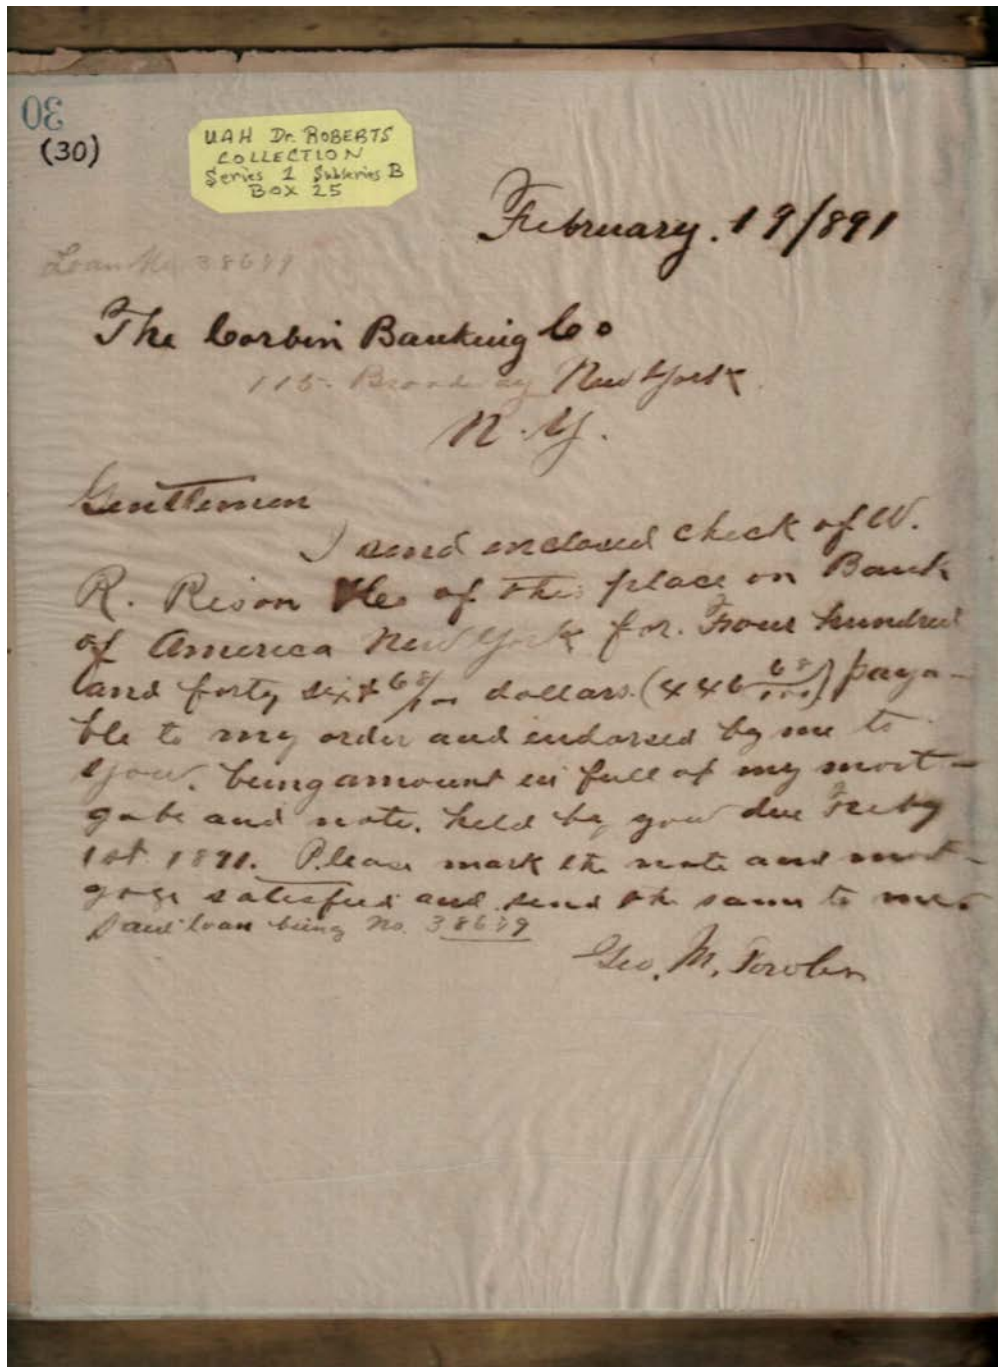 30
(30)
UAH Dr. ROBERTS
COLLECTION
Series 1 Subseries B
BOX 25
February. 19/891
Loan No 38699
The Corbin Banking Co
115. Broadway New York
N. Y.
Gentlemen
I send enclosed check of W.
R. Rison &Co of this place on Bank
of America New York for. Four hundred
and forty six + 68/100 dollars. (446 68/100) paya-
ble to my order and endorsed by me to
you. being amount in full of my mort-
gage and note. held by you due Feby
1st 1891. Please mark the note and mort-
gage satisfied and send the same to me.
Said loan being No. 38699
Geo. M.